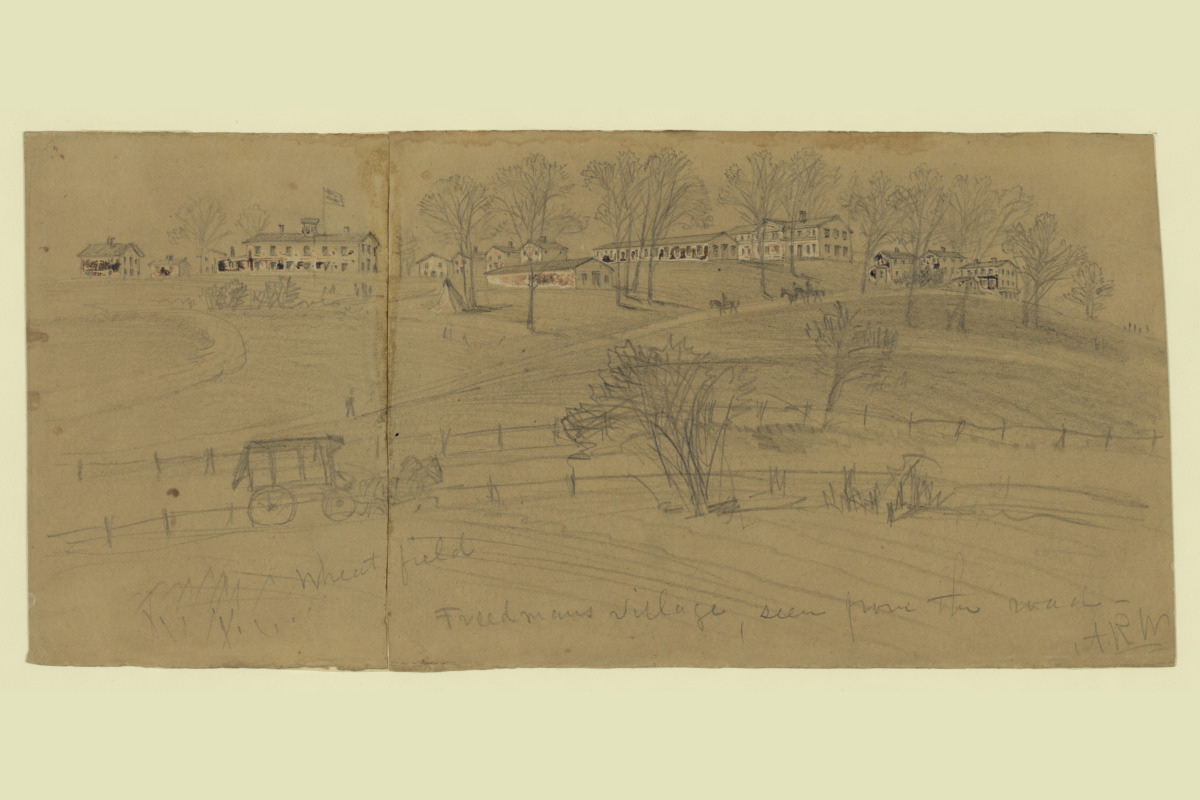 Wheat field
Freedmans village, seen from the road -
A.R.W